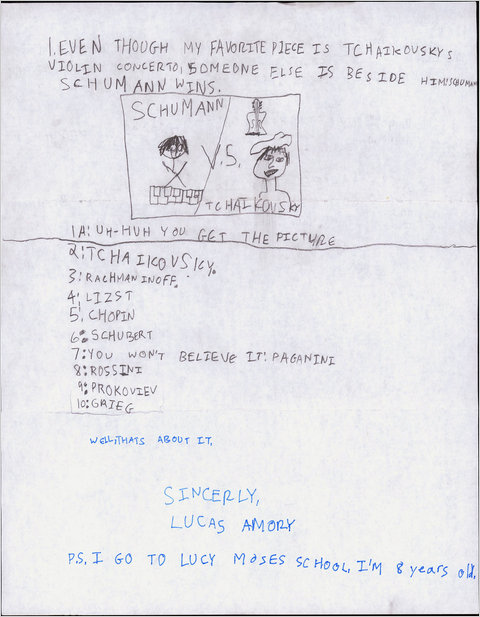 1. EVEN THOUGH MY FAVORITE PIECE IS TCHAIKOVSKYS
VIOLIN CONCERTO, SOMEONE ELSE IS BESIDE HIM! SCHUMANN
SCHUMANN WINS.
SCHUMANN
V.S.
TCHAIKOVSKY
1A: UH-HUH YOU GET THE PICTURE
2: TCHAIKOVSKY.
3: RACHMANINOFF.
4: LIZST
5: CHOPIN
6: SCHUBERT
7: YOU WON'T BELIEVE IT! PAGANINI
8: ROSSINI
9: PROKOVIEV
10: GRIEG
WELL, THATS ABOUT IT,
SINCERLY,
LUCAS AMORY
P.S. I GO TO LUCY MOSES SCHOOL, I'M 8 years old.